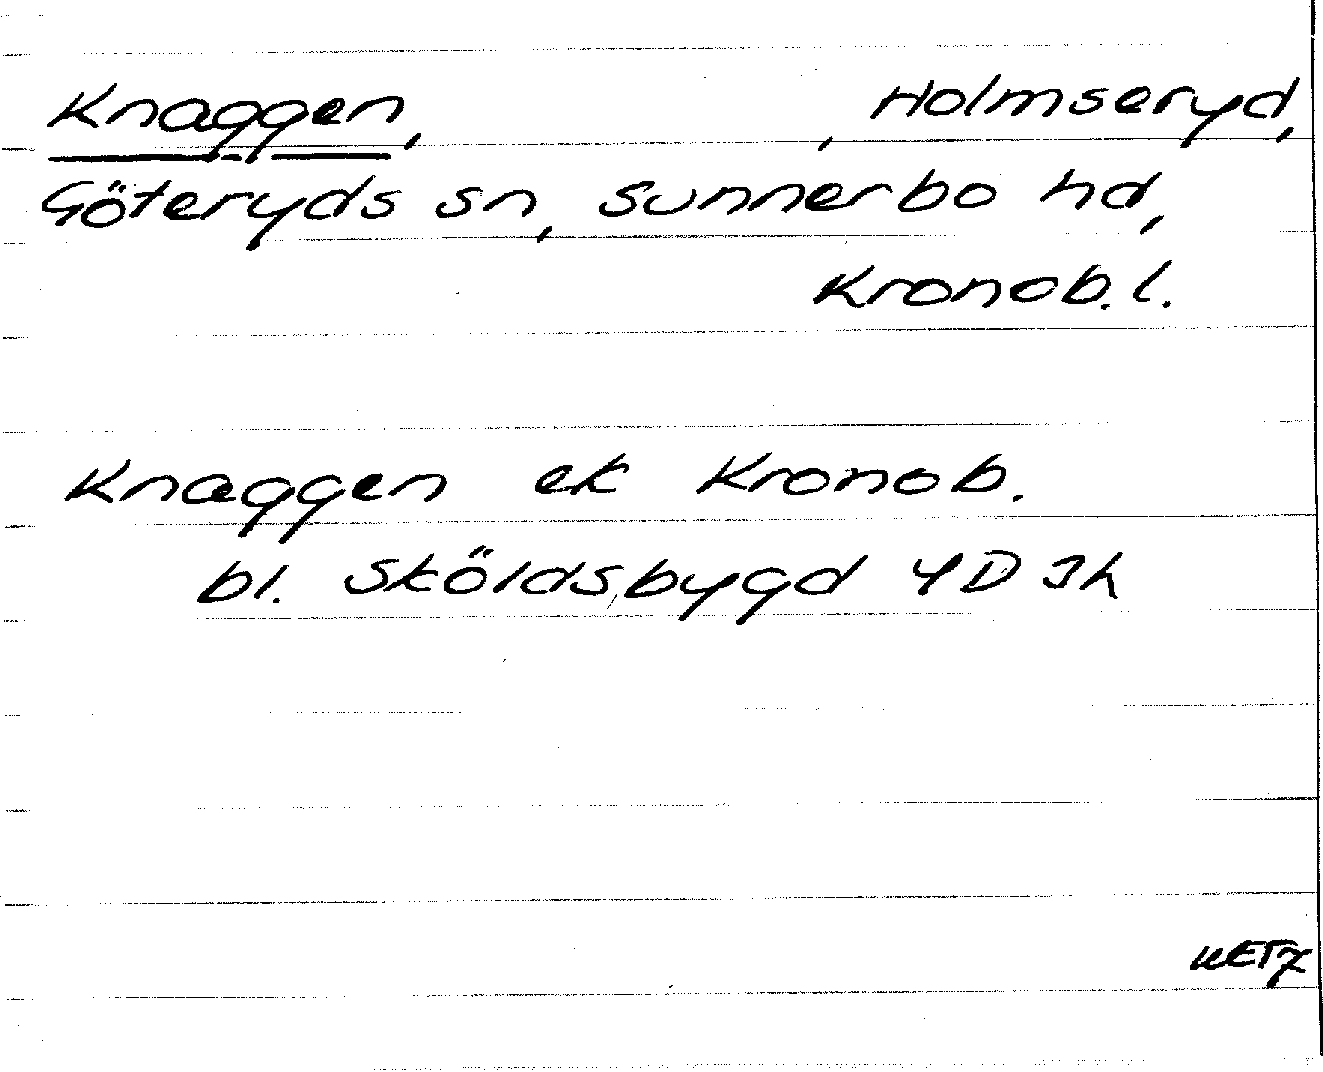 Knaggen, , Holmseryd,
Göteryds sn, Sunnerbo hd,
Kronob. l.
Knaggen ek Kronob.
bl. Sköldsbygd 4D 3h